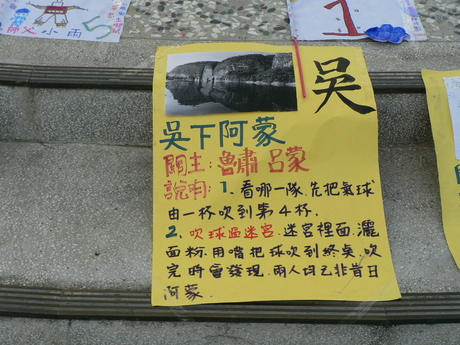 師父 小雨 5
1
吳
吳下阿蒙
關主: 魯肅 呂蒙
說明: 1. 看哪一隊先把氣球
由一杯吹到第4杯.
2. 吹球過迷宮. 迷宮裡面灑
面粉. 用嘴把球吹到終點. 吹
完時會發現. 兩人均已非昔日
阿蒙.